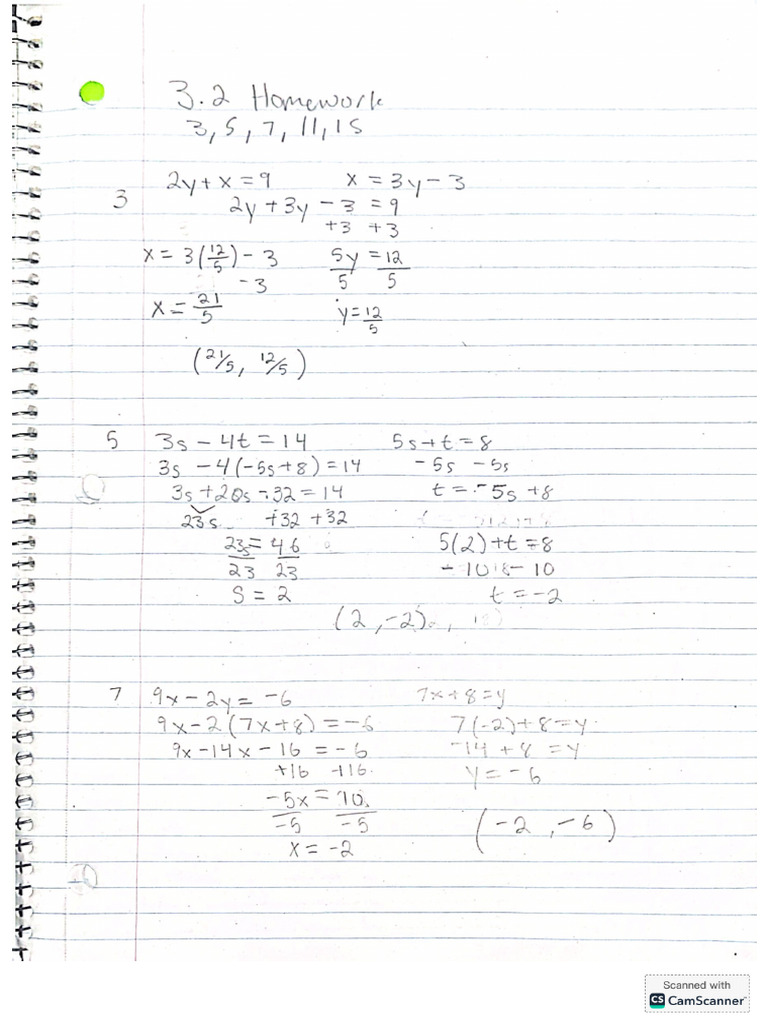 3.2 Homework
3, 5, 7, 11, 15
3
2y + x = 9 x = 3y - 3
2y + 3y - 3 = 9
+3 +3
x = 3(12/5) - 3 5y = 12
-3 5 5
x = 21/5 y = 12/5
(21/5, 12/5)
5 3s - 4t = 14 5s + t = 8
3s - 4(-5s + 8) = 14 -5s -5s
3s + 20s - 32 = 14 t = -5s + 8
23s +32 +32
23s = 46 5(2) + t = 8
23 23 -10 -10
s = 2 t = -2
(2, -2)
7 9x - 2y = -6 7x + 8 = y
9x - 2(7x + 8) = -6 7(-2) + 8 = y
9x - 14x - 16 = -6 -14 + 8 = y
+16 +16 y = -6
-5x = 10
-5 -5 (-2, -6)
x = -2
Scanned with
CS CamScanner